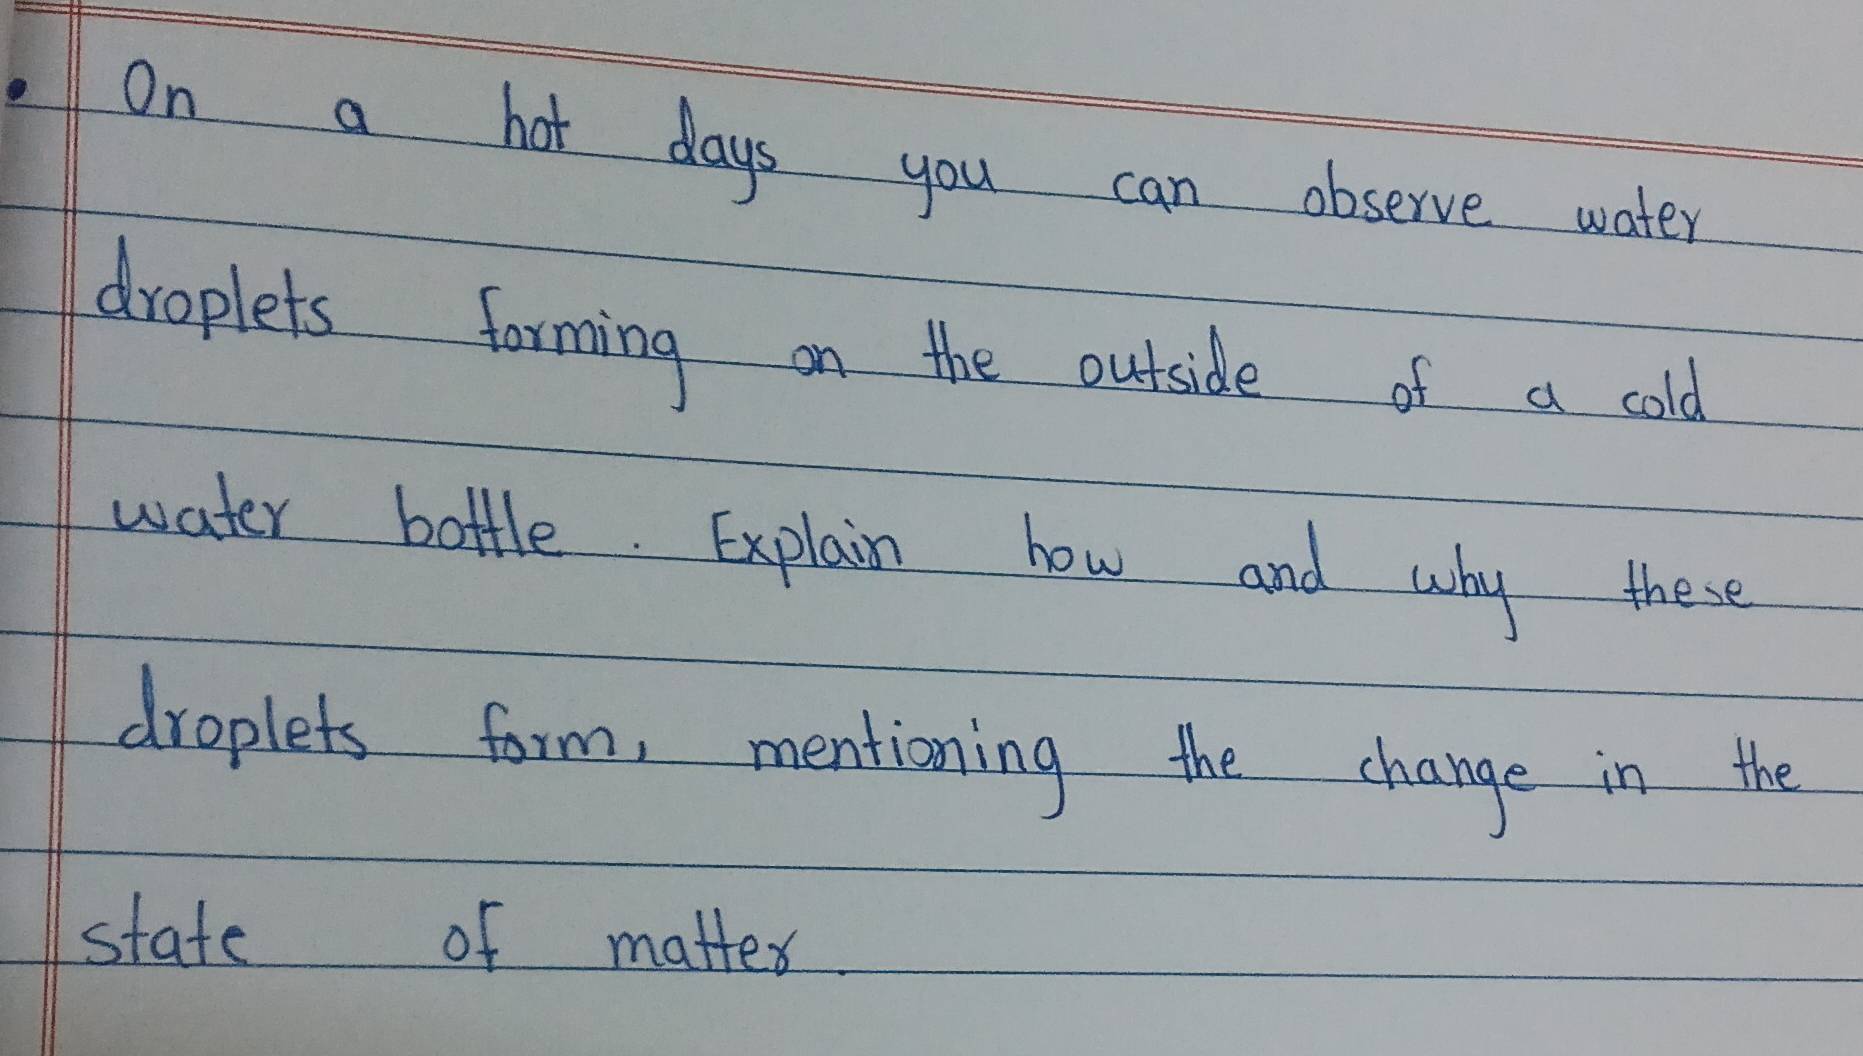 . On a hot days you can observe water
droplets forming on the outside of a cold
water bottle. Explain how and why these
droplets form, mentioning the change in the
state of matter.